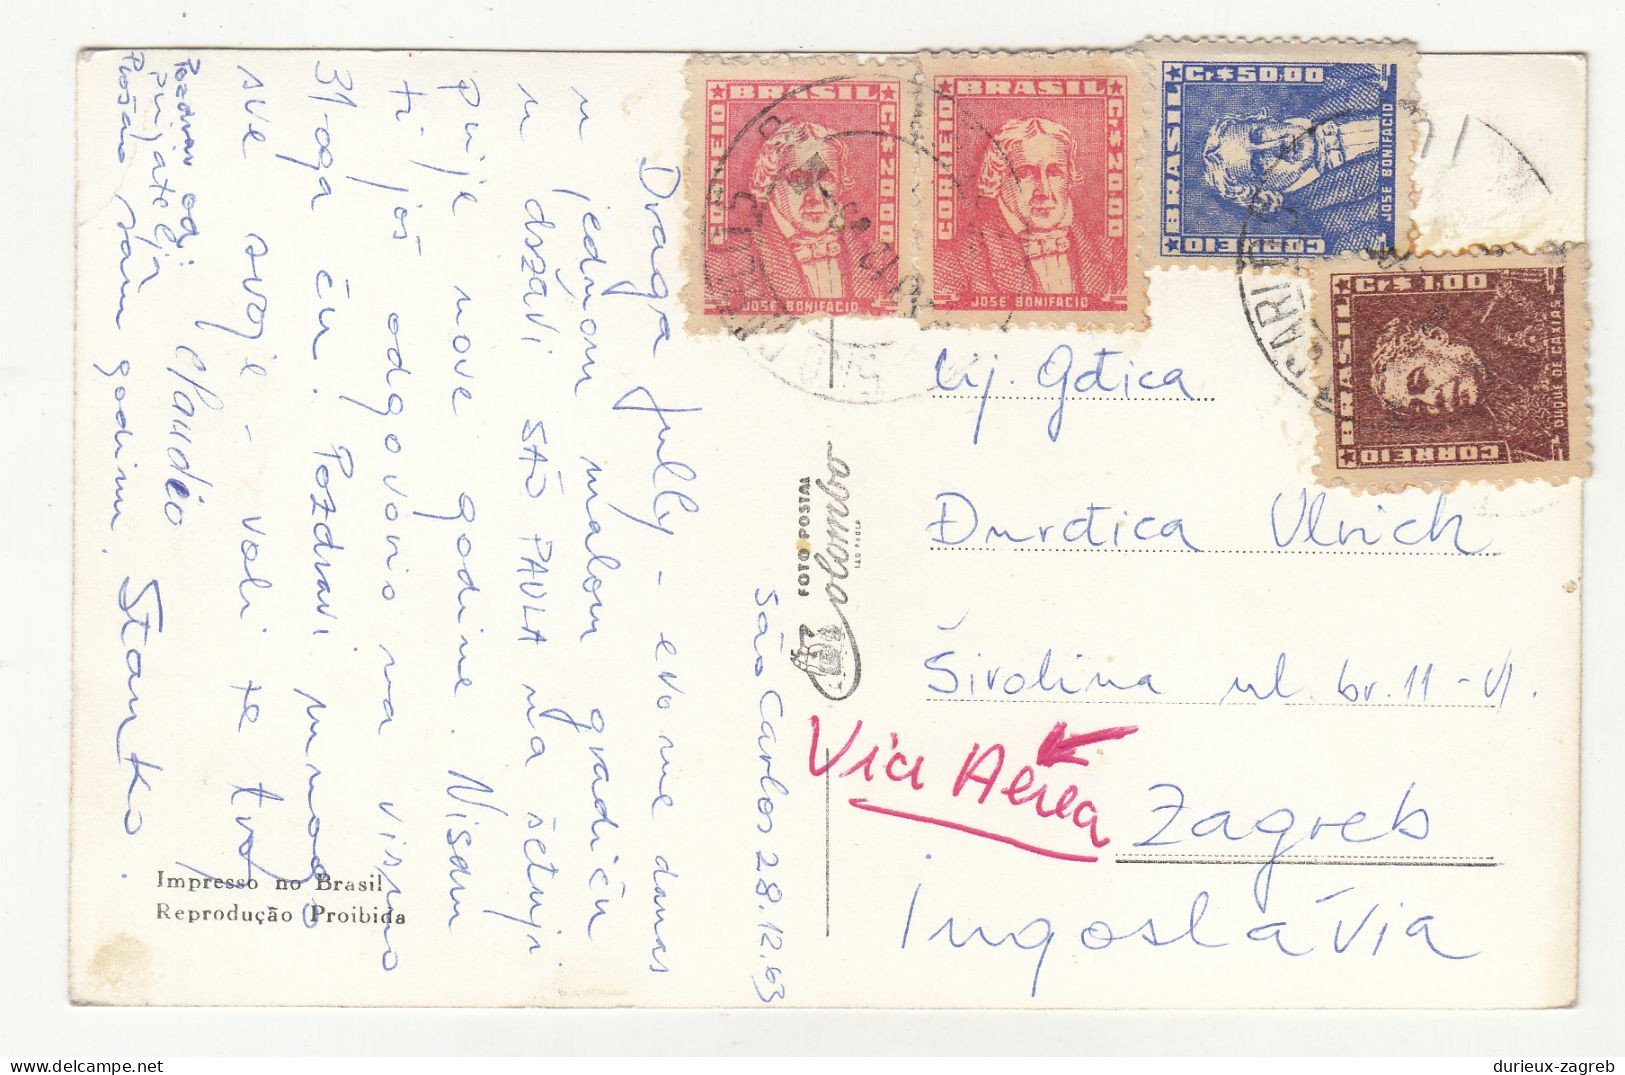 São Carlos 28.12.63
Draga Jully - evo me danas
u jednom malom gradiću
u državi SÃO PAULA na šetnji
prije nove godine. Nisam
ti još odgovorio na pismo
31-oga ću. Pozdravi mnogo
sve svoje - voli te tvoj
Stanko.
Pozdrav od
prijatelja
Claudio
Prošao sam godinu.
Impresso no Brasil
Reprodução Proibida
FOTO POSTAL
Colombo
SÃO PAULO
BRASIL
CORREIO
Cr.$ 20.00
JOSE BONIFACIO
BRASIL
CORREIO
Cr.$ 20.00
JOSE BONIFACIO
Cr.$ 50.00
BRASIL
CORREIO
JOSE BONIFACIO
Cr.$ 1.00
BRASIL
CORREIO
DUQUE DE CAXIAS
Cij. Gđica
Đurđica Ulrich
Širolina ul. br. 11 - VI.
Via Aerea
Zagreb
Iugoslávia
durieux-zagreb